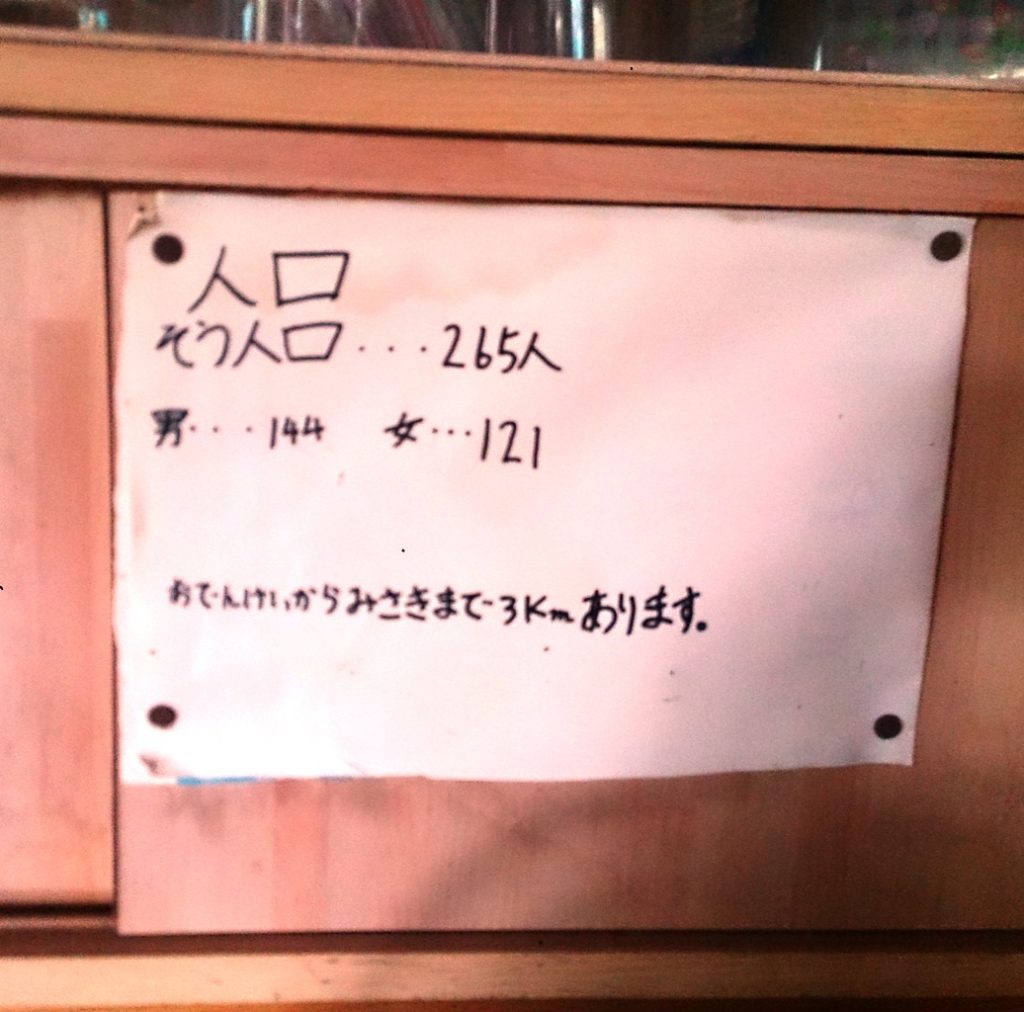 人口
そう人口・・・265人
男・・・144 女・・・121
おでんけいからみさきまで3Kmあります。